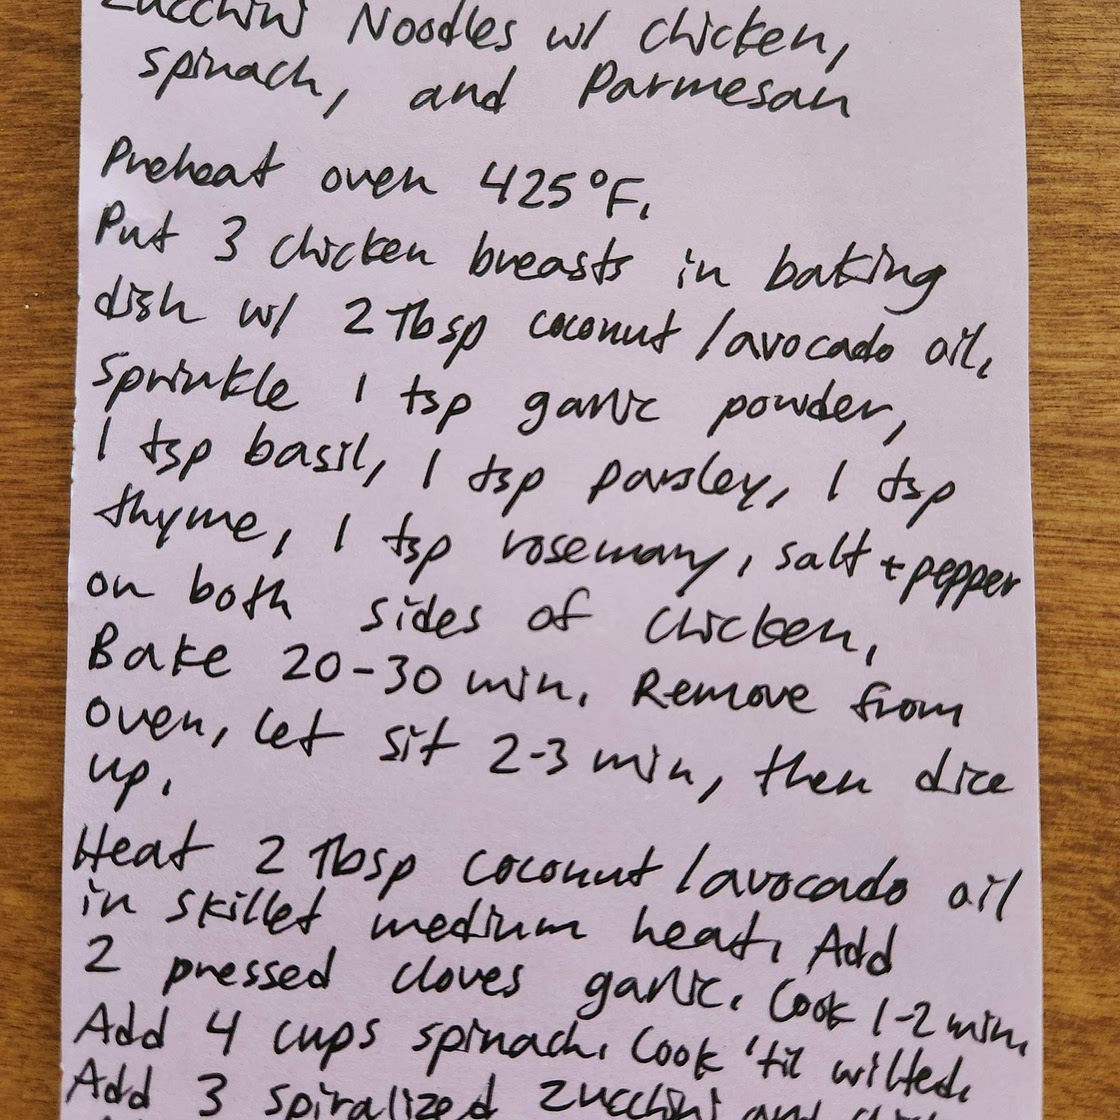 Zucchini Noodles w/ chicken,
spinach, and Parmesan
Preheat oven 425°F.
Put 3 chicken breasts in baking
dish w/ 2 Tbsp coconut/avocado oil.
Sprinkle 1 tsp garlic powder,
1 tsp basil, 1 tsp parsley, 1 tsp
thyme, 1 tsp rosemary, salt + pepper
on both sides of chicken.
Bake 20-30 min. Remove from
oven, let sit 2-3 min, then dice
up.
Heat 2 Tbsp coconut/avocado oil
in skillet medium heat. Add
2 pressed cloves garlic. Cook 1-2 min.
Add 4 cups spinach. Cook 'til wilted.
Add 3 spiralized zucchini and